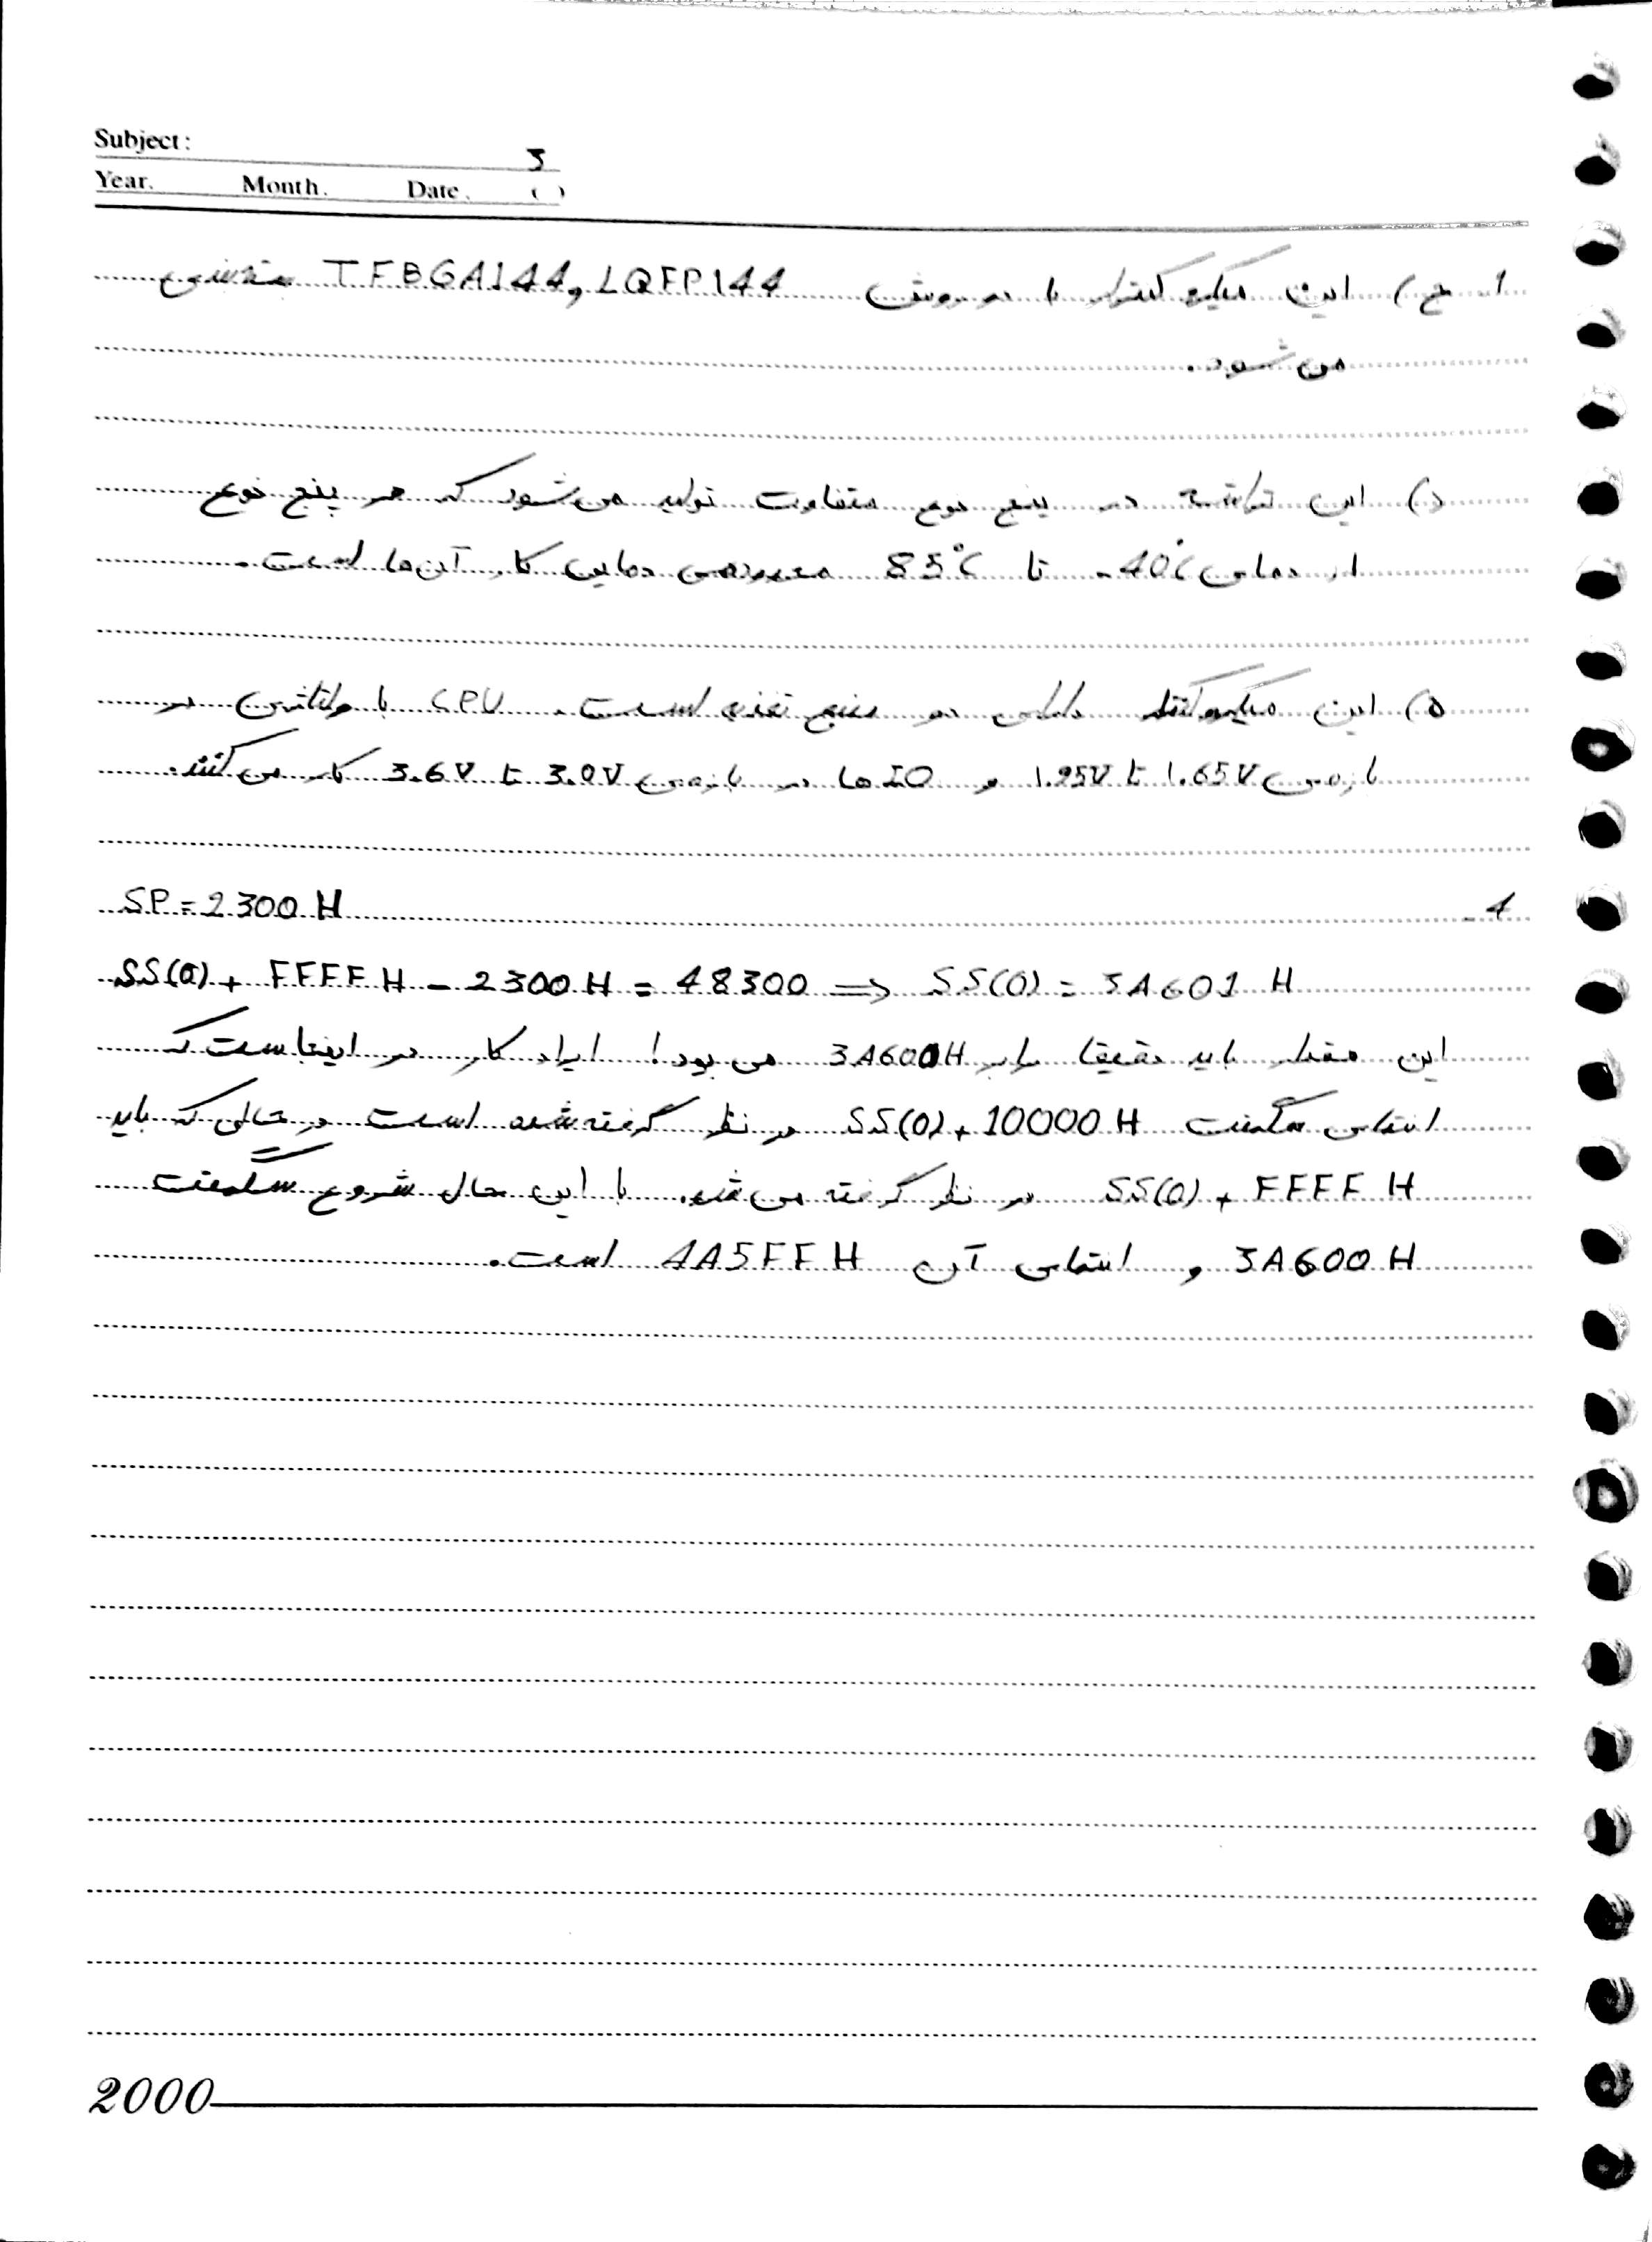 Subject:
3
Year. Month. Date. ( )
1. ج) این میکروکنترلر با دو روش LQFP144 و TFBGA144 مونتاژ
می‌شود.
د) این تراشه در پنج نوع متفاوت تولید می‌شود که هر پنج نوع
از دمای -40°C تا 85°C محدوده‌ی دمایی کار آن‌ها است.
ه) این میکروکنترلر دارای دو منبع تغذیه است. CPU با ولتاژی در
بازه‌ی 1.65V تا 1.95V و IO ها در بازه‌ی 3.0V تا 3.6V کار می‌کنند.
4-
SP = 2300 H
SS(0) + FFFF H - 2300 H = 48300 => SS(0) = 3A601 H
این مقدار باید دقیقا برابر 3A600H می‌بود! ایراد کار در اینجاست که
انتهای سگمنت SS(0) + 10000 H در نظر گرفته شده است در حالی که باید
SS(0) + FFFF H در نظر گرفته می‌شد. با این حال شروع سگمنت
3A600 H و انتهای آن 4A5FF H است.
2000